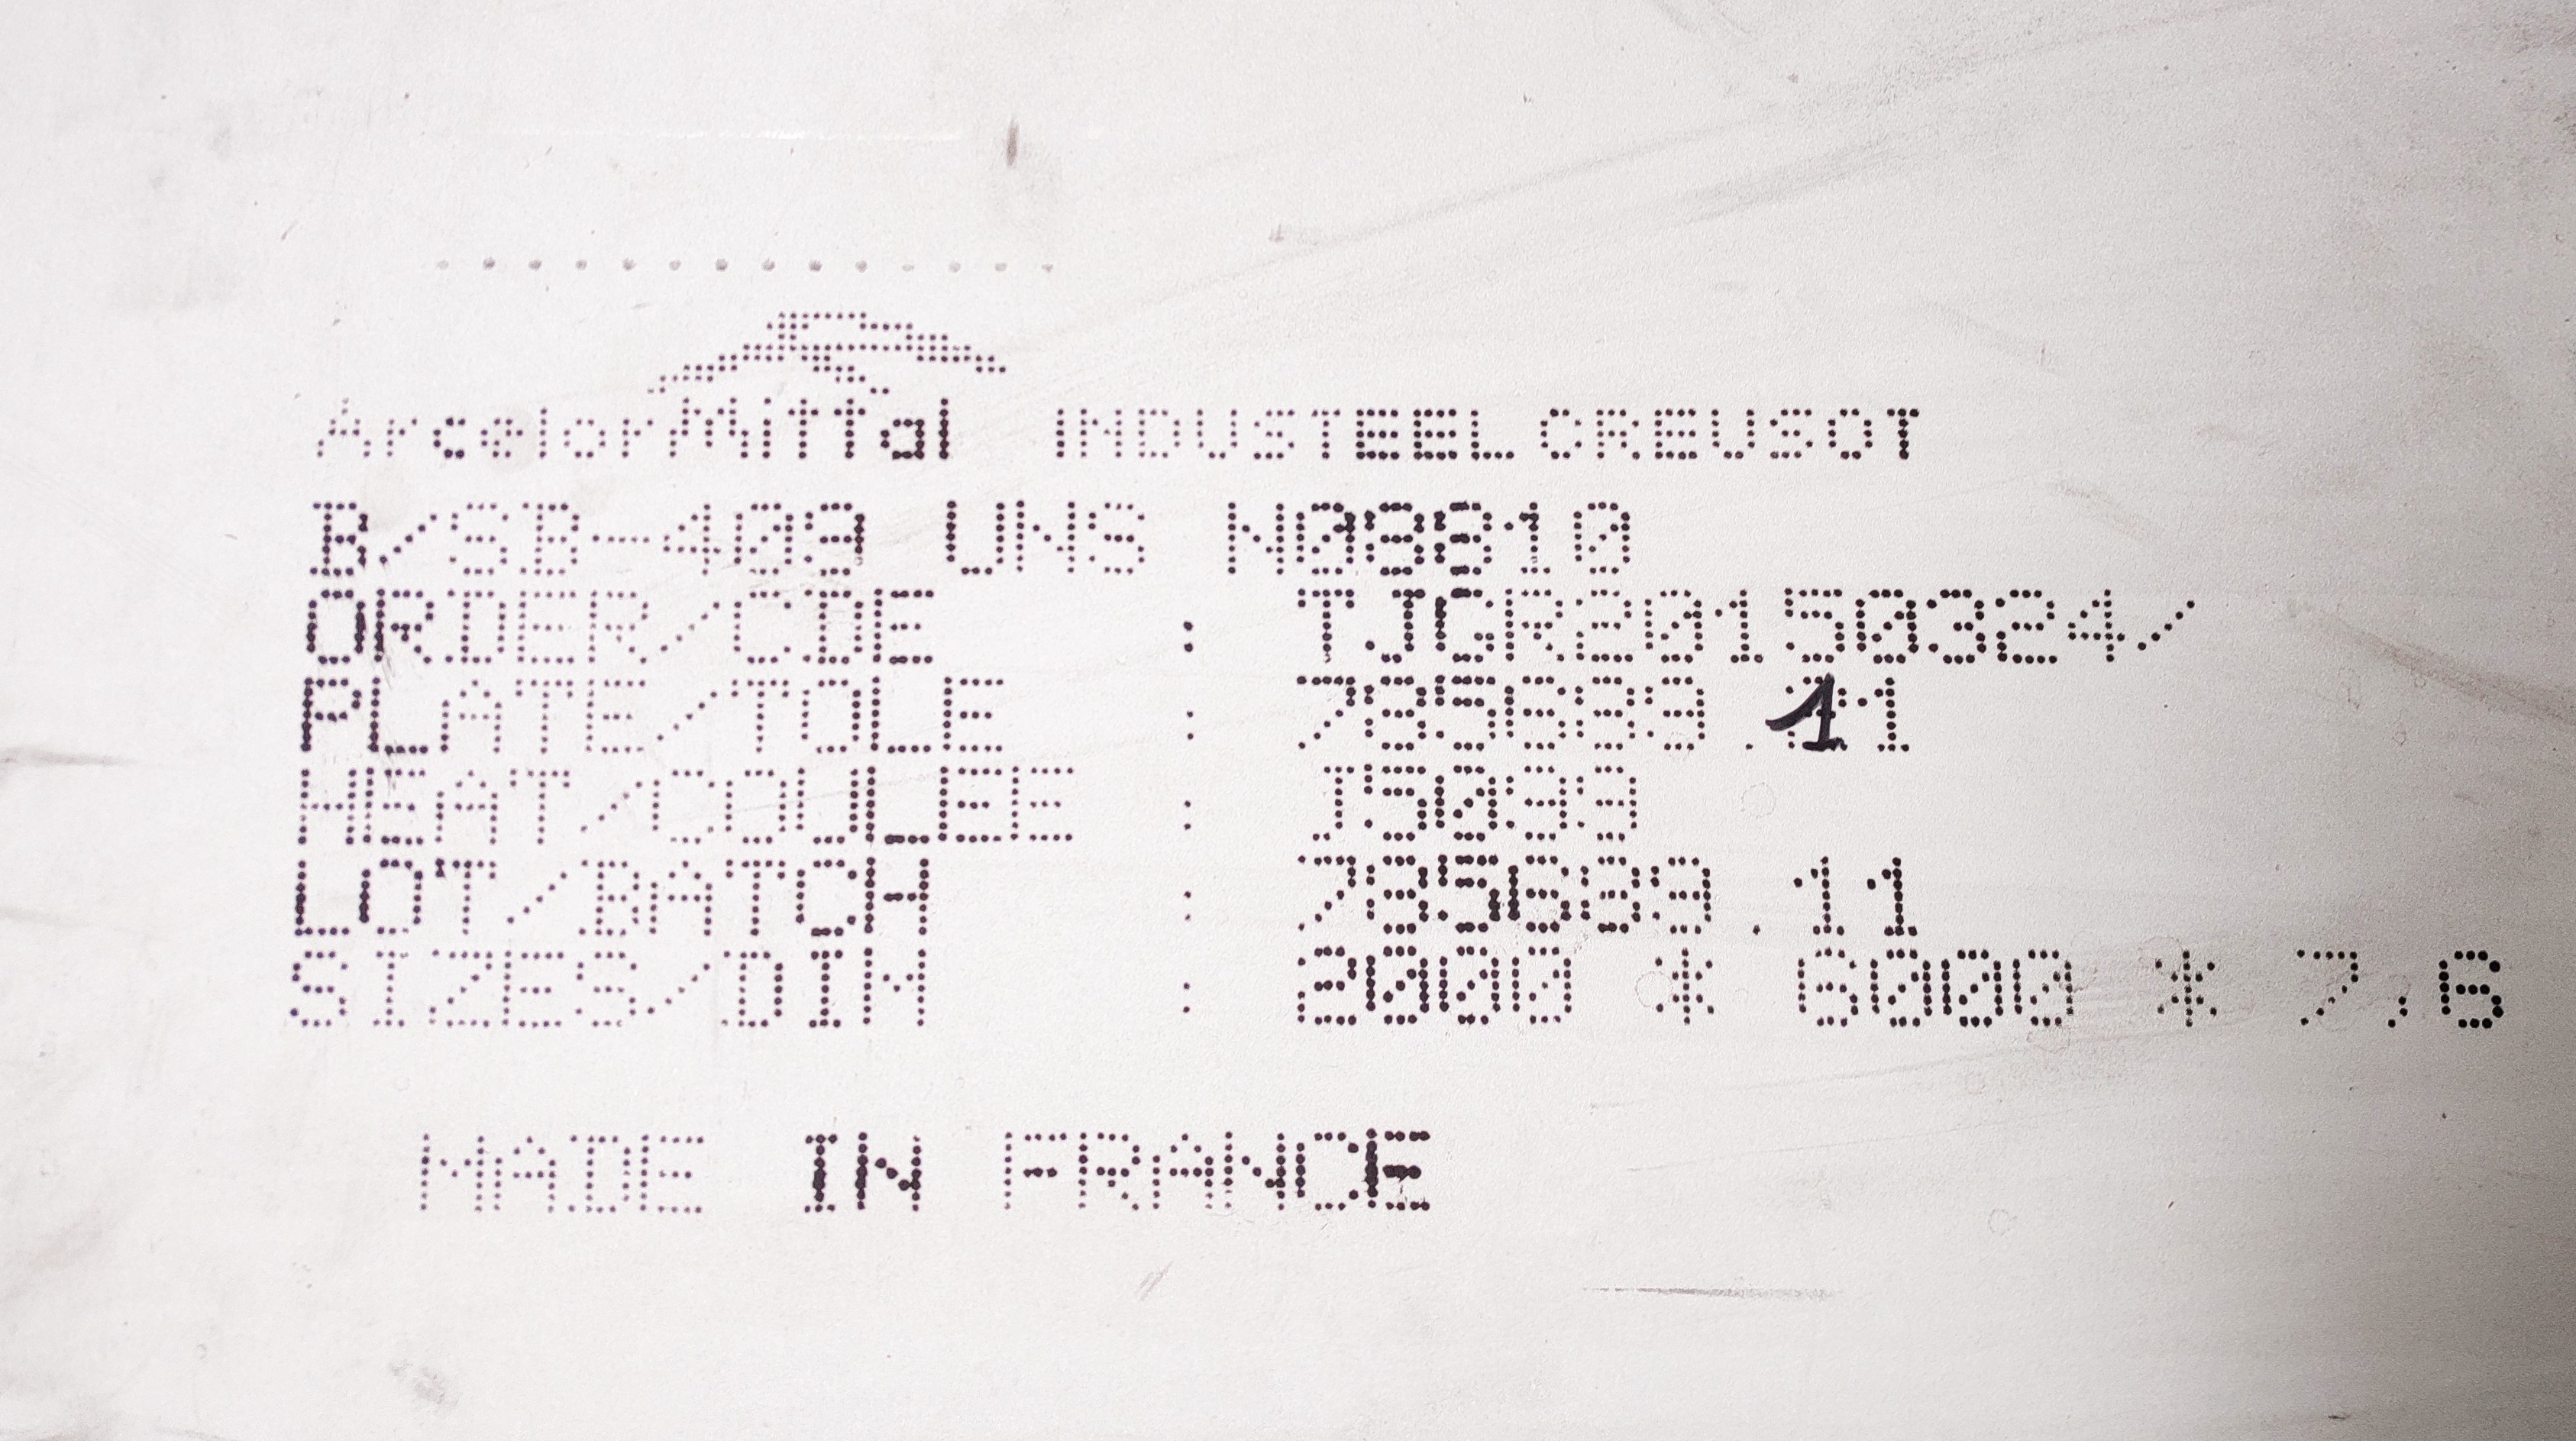 ArcelorMittal INDUSTEEL CREUSOT
B/SB-409 UNS N08810
ORDER/CDE : TJGR20150324/
PLATE/TOLE : 785689 .11
HEAT/COULEE : J5099
LOT/BATCH : 785689 .11
SIZES/DIM : 2000 * 6000 * 7,6
MADE IN FRANCE